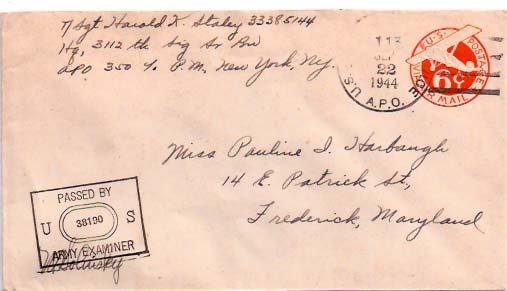 T/Sgt Harold K. Staley 33385144
Hq, 3112 th Sig Sv Bn
APO 350 % P.M, New York, Ny.
113
22
1944
U.S. A.P.O.
U.S. POSTAGE
6¢
VIA AIR MAIL
Miss Pauline I. Harbaugh
14 E. Patrick St,
Frederick, Maryland
PASSED BY
U 38190 S
ARMY EXAMINER